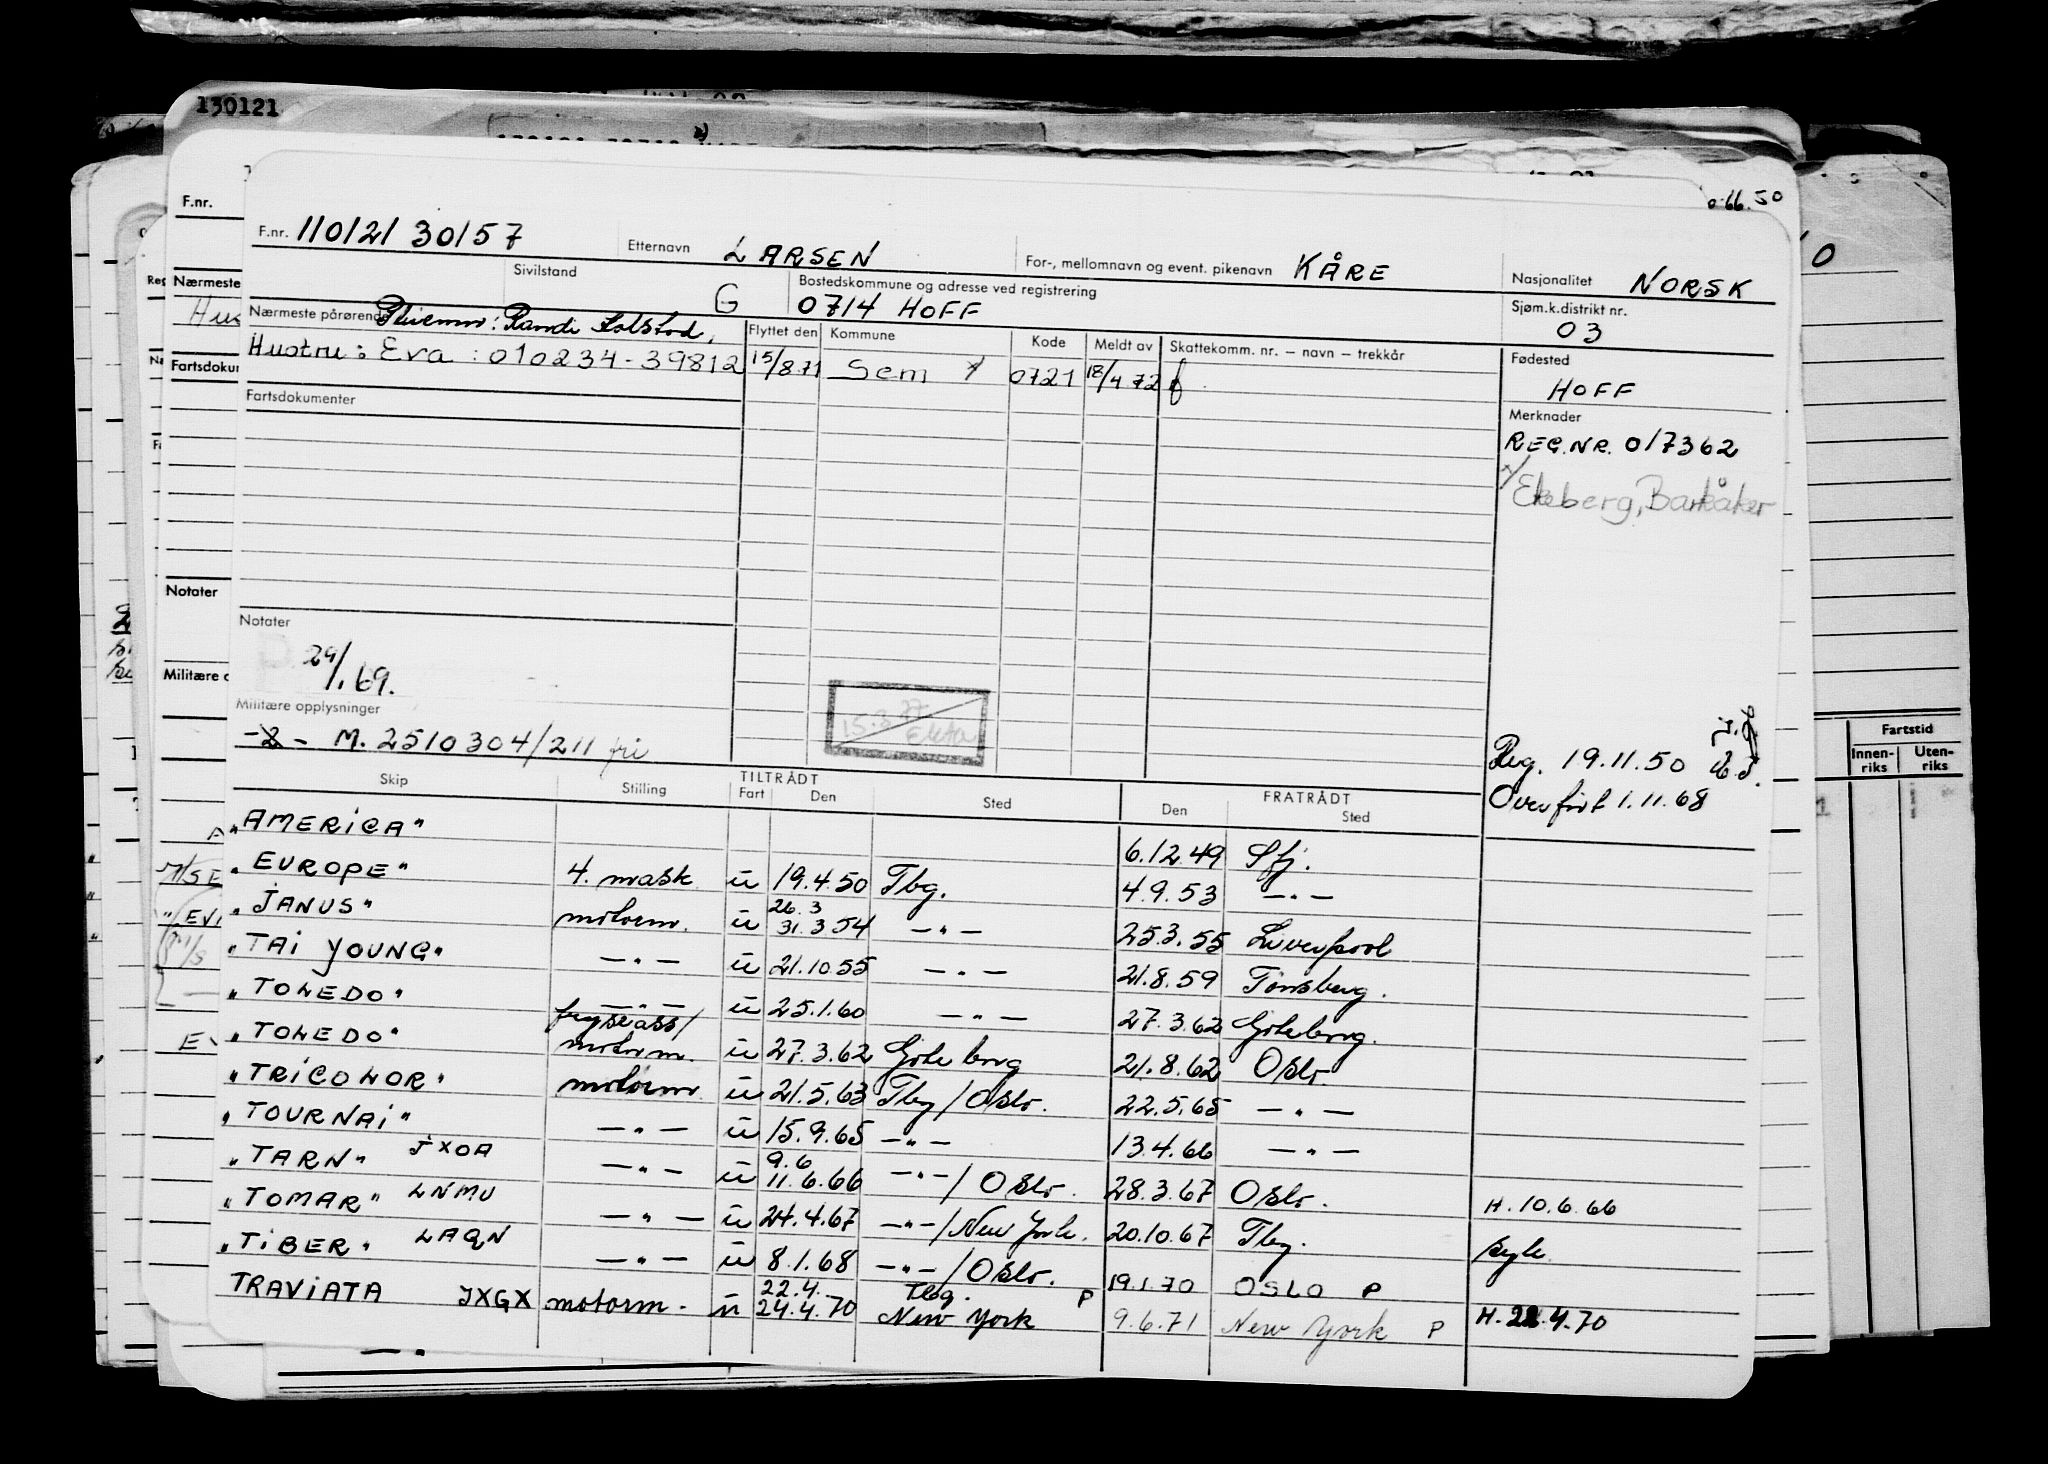 130121
66.50
F.nr. 110121 30157 Etternavn LARSEN For-, mellomnavn og event. pikenavn KÅRE Nasjonalitet NORSK
Sivilstand G Bostedskommune og adresse ved registrering 0714 HOFF Sjøm.k.distrikt nr. 03
Nærmeste pårørende Randi
Hustru: Eva: 010234-39812
Flyttet den Kommune Kode Meldt av Skattekomm. nr. – navn – trekkår
15/8.71 Sem x 0721 18/4 72
Fødested
HOFF
Fartsdokumenter
Merknader
REG.NR. 017362
x/ Ekeberg, Barkåker
Notater
29/1.69.
Militære opplysninger
-2- M. 2510304/211 fri
Reg. 19.11.50
Overført 1.11.68
Skip Stilling TILTRÅDT Fart Den Sted FRATRÅDT Den Sted
"AMERICA" 6.12.49 Sfj.
"EUROPE" 4. mask ü 19.4.50 Tbg. 4.9.53 -"-
"JANUS" motorm. ü 26.3 31.3.54 -"- 25.3.55 Liverpool
"TAI YOUNG" -"- ü 21.10.55 -"- 21.8.59 Tønsberg.
"TOLEDO" -"- ü 25.1.60 -"- 27.3.62 Göteborg.
"TOLEDO" fryseass/ motorm. ü 27.3.62 Göteborg 21.8.62 Oslo.
"TRICOLOR" motorm. ü 21.5.63 Tbg/Oslo. 22.5.65 -"-
"TOURNAI" -"- ü 15.9.65 -"- 13.4.66 -"-
"TARN" JXOA -"- ü 9.6 11.6.66 -"-/Oslo. 28.3.67 Oslo. H. 10.6.66
"TOMAR" LNMU -"- ü 24.4.67 -"-/New York. 20.10.67 Tbg. syk.
"TIBER" LAQN -"- ü 8.1.68 -"-/Oslo. 19.1.70 OSLO P
TRAVIATA JXGX motorm. ü 22.4. 24.4.70 Tbg. New York P 9.6.71 New York P H. 22.4.70
F.nr.
Nærmeste
Notater
Fartstid
Innenriks Utenriks